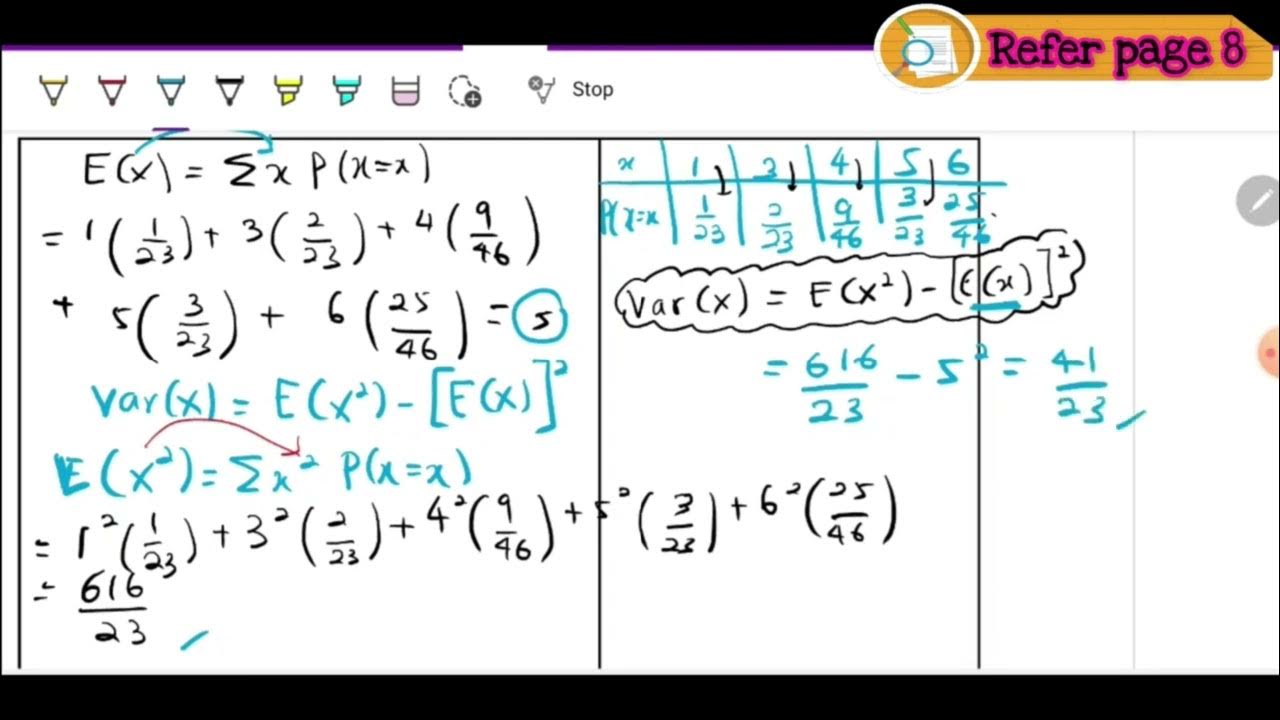 Refer page 8
Stop
E(x) = Σx P(x=x)
= 1(1/23) + 3(2/23) + 4(9/46)
+ 5(3/23) + 6(25/46) = 5
Var(x) = E(x²) - [E(x)]²
E(x²) = Σx² P(x=x)
= 1²(1/23) + 3²(2/23) + 4²(9/46) + 5²(3/23) + 6²(25/46)
= 616/23
x 1 3 4 5 6
P(x=x 1/23 2/23 9/46 3/23 25/46
Var(x) = E(x²) - [E(x)]²
= 616/23 - 5² = 41/23